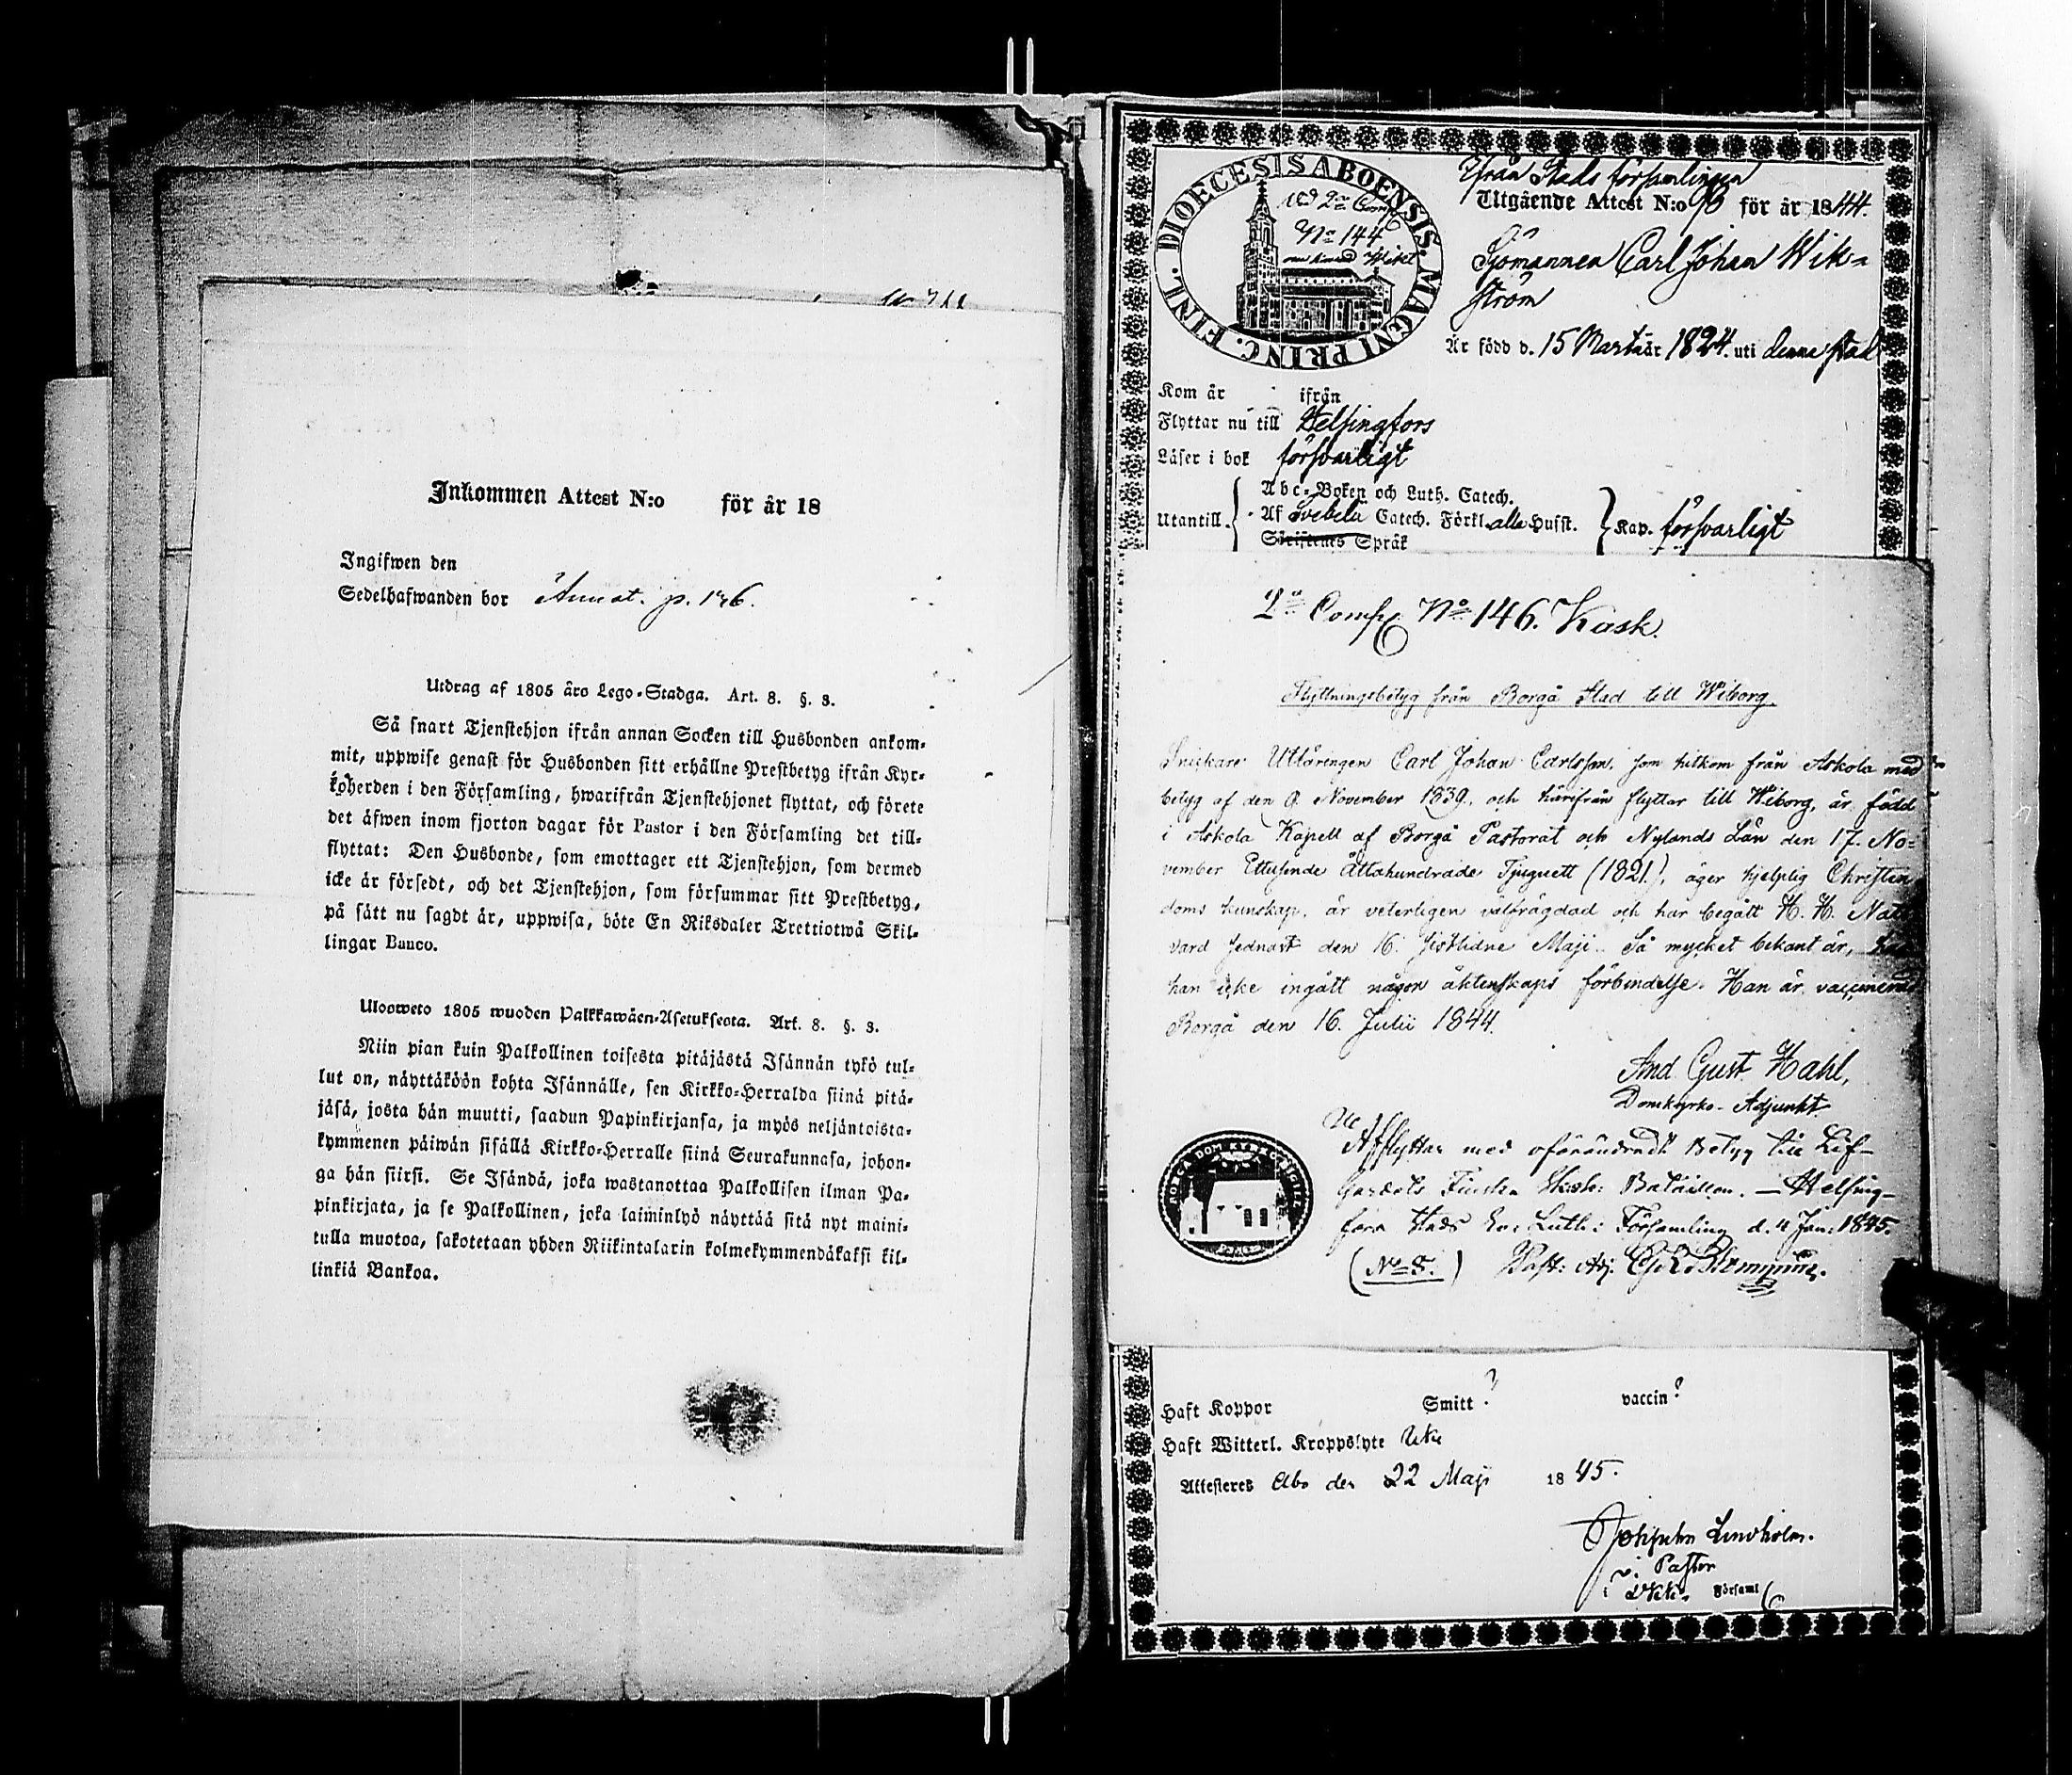 Inkommen Attest N:o för år 18
Ingifwen den
Sedelhafwanden bor Annot. p. 176.
Utdrag af 1805 åro Lego-Stadga. Art. 8. §. 3.
Så snart Tjenstehjon ifrån annan Socken till Husbonden ankom-
mit, uppwise genast för Husbonden sitt erhållne Prestbetyg ifrån Kyr-
koherden i den Församling, hwarifrån Tjenstehjonet flyttat, och förete
det äfwen inom fjorton dagar för Pastor i den Församling det till-
flyttat: Den Husbonde, som emottager ett Tjenstehjon, som dermed
icke är försedt, och det Tjenstehjon, som försummar sitt Prestbetyg,
på sätt nu sagdt är, uppwisa, böte En Riksdaler Trettiotwå Skil-
lingar Banco.
Uloosweto 1805 wuoden Palkkawäen-Asetuksesta. Art. 8. §. 3.
Niin pian kuin Palkollinen toisesta pitäjästä Isännän tykö tul-
lut on, näyttäköön kohta Isännälle, sen Kirkko-Herralda siinä pitä-
jäsä, josta hän muutti, saadun Papinkirjansa, ja myös neljäntoista-
kymmenen päiwän sisällä Kirkko-Herralle siinä Seurakunnasa, johon-
ga hän siirsi. Se Isändä, joka wastanottaa Palkollisen ilman Pa-
pinkirjata, ja se Palkollinen, joka laiminlyö näyttää sitä nyt maini-
tulla muotoa, sakotetaan yhden Riikintalarin kolmekymmendäkaksi kil-
linkiä Bankoa.
DIOECESIS ABOENSIS. MAGNI PRINC. FINL.
2:a Comp
No 144
Ifrån Stads församlingen
Utgående Attest N:o 96 för år 1844.
Sjömannen Carl Johan Wik-
ström
Är född d. 15 Marti år 1824. uti denna stad
Kom år ifrån
Flyttar nu till Helsingfors
Läser i bok försvarligt
Utantill. Abc-Boken och Luth. Catech.
Af Svebeli Catech. Förkl. alla Husst. Kap. försvarligt
Skriftenes Språk
2:a Comp No 146. Kask.
Flyttningsbetyg från Borgå Stad till Wiborg.
Snickare Utläringen Carl Johan Carlsson, som hitkom från Askola med
betyg af den 9 November 1839, och härifrån flyttar till Wiborg, är född
i Askola Kapell af Borgå Pastorat och Nylands Län den 17. No-
vember Ettusende Åttahundrade Tjuguett (1821.), äger hjelplig Christen
doms kunskap, är veterligen välfrägdad och har begått H. H. Natt
vard sednast den 16. sistlidne Maji. Så mycket bekant är, har
han icke ingått någon äktenskaps förbindelse. Han är vaccinerad
Borgå den 16. Julii 1844.
And. Gust. Hahl,
Domkyrko-Adjunkt
Afflyttar med oförändradt Betyg till Lif-
Gardets Finska Skarp: Bataillon. – Helsing-
fors Stads Ev: Luth: Församling d. 4 Jan: 1845.
(No 5.) Past: Adj.
Haft Koppor Smitt? vaccin?
Haft Witterl. Kroppslyte Icke
Attesteres Åbo den 22 Maji 1845.
Lindholm.
v. Pastor
i Församl